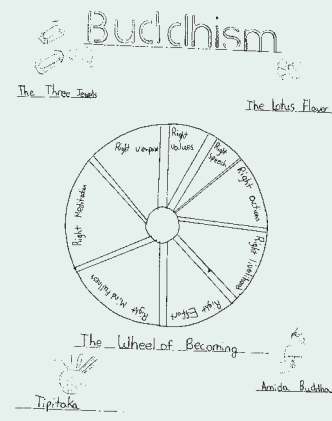 Buddhism
The Three Jewels
The Lotus Flower
Right Viewpoint
Right Values
Right Speech
Right Actions
Right Livelihood
Right Effort
Right Mindfulness
Right Meditation
The Wheel of Becoming
Amida Buddha
Tipitaka